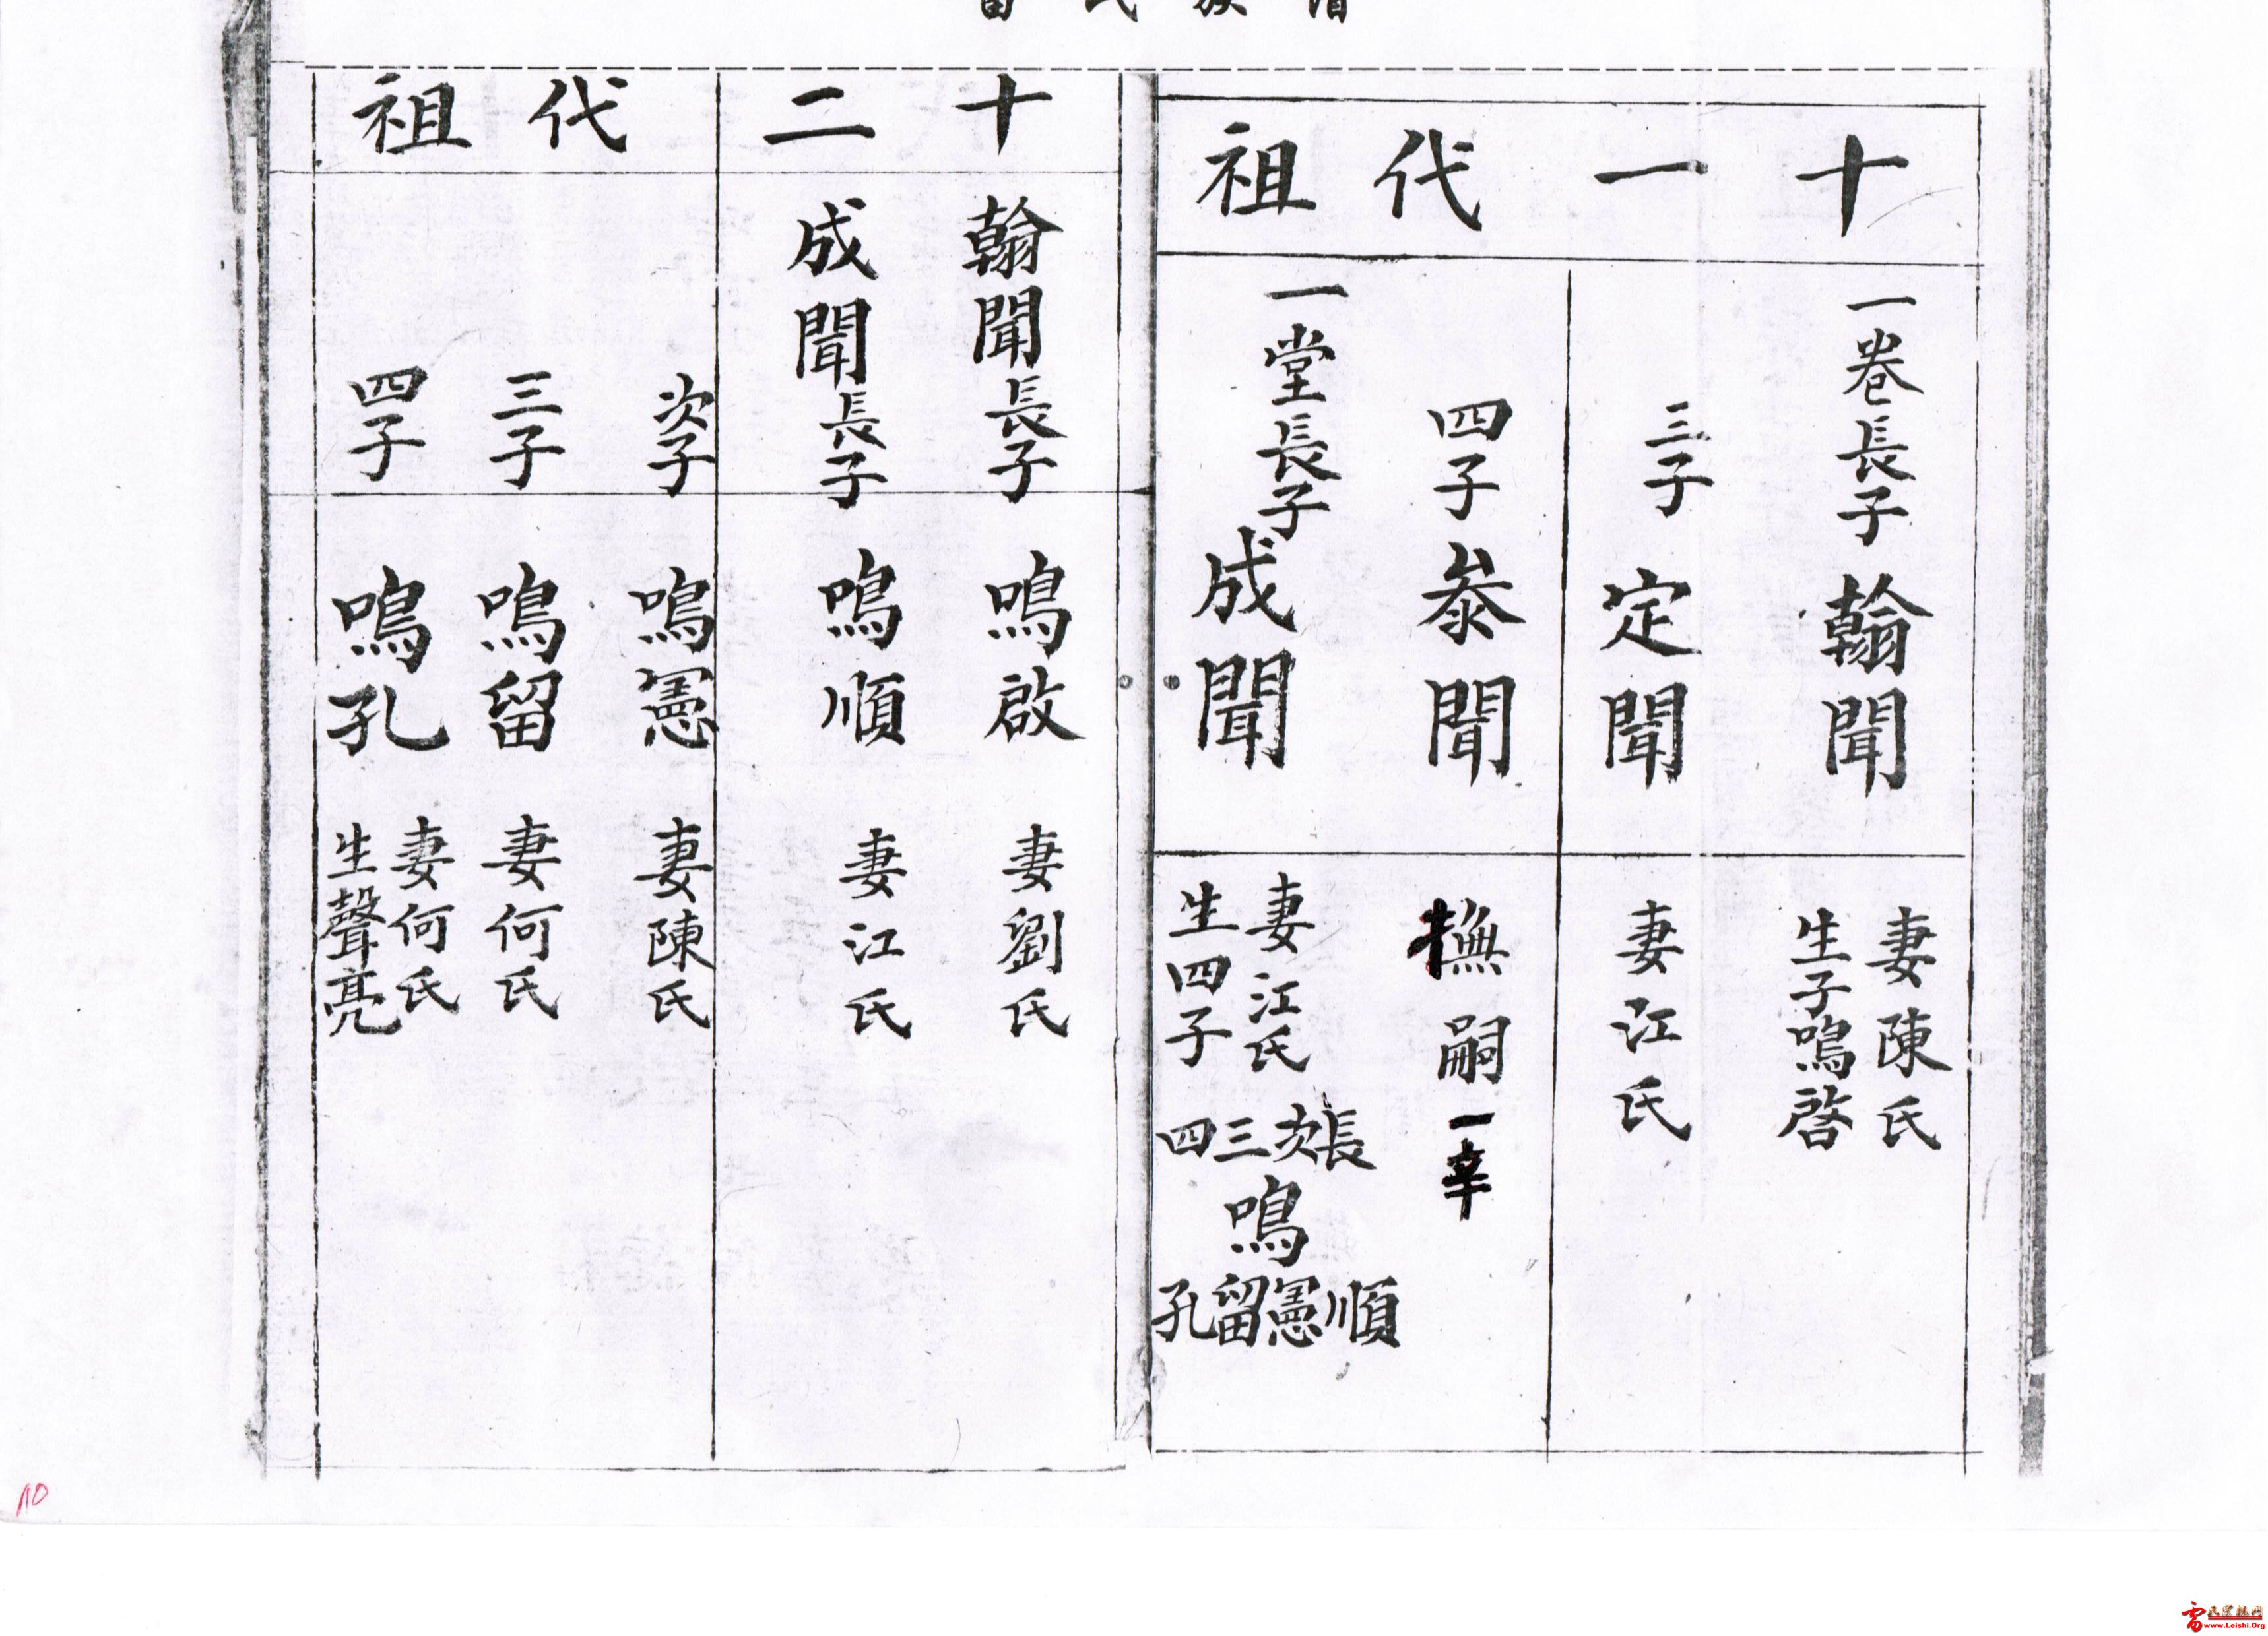 十一代祖
一卷長子翰聞
妻陳氏
生子鳴啓
三子定聞
妻江氏
四子叅聞
撫嗣一辛
一堂長子成聞
妻江氏
生四子
長次三四
鳴
順憲留孔
十二代祖
翰聞長子鳴啟
妻劉氏
成聞長子鳴順
妻江氏
次子鳴憲
妻陳氏
三子鳴留
妻何氏
四子鳴孔
妻何氏
生聲亮
www.Leishi.Org